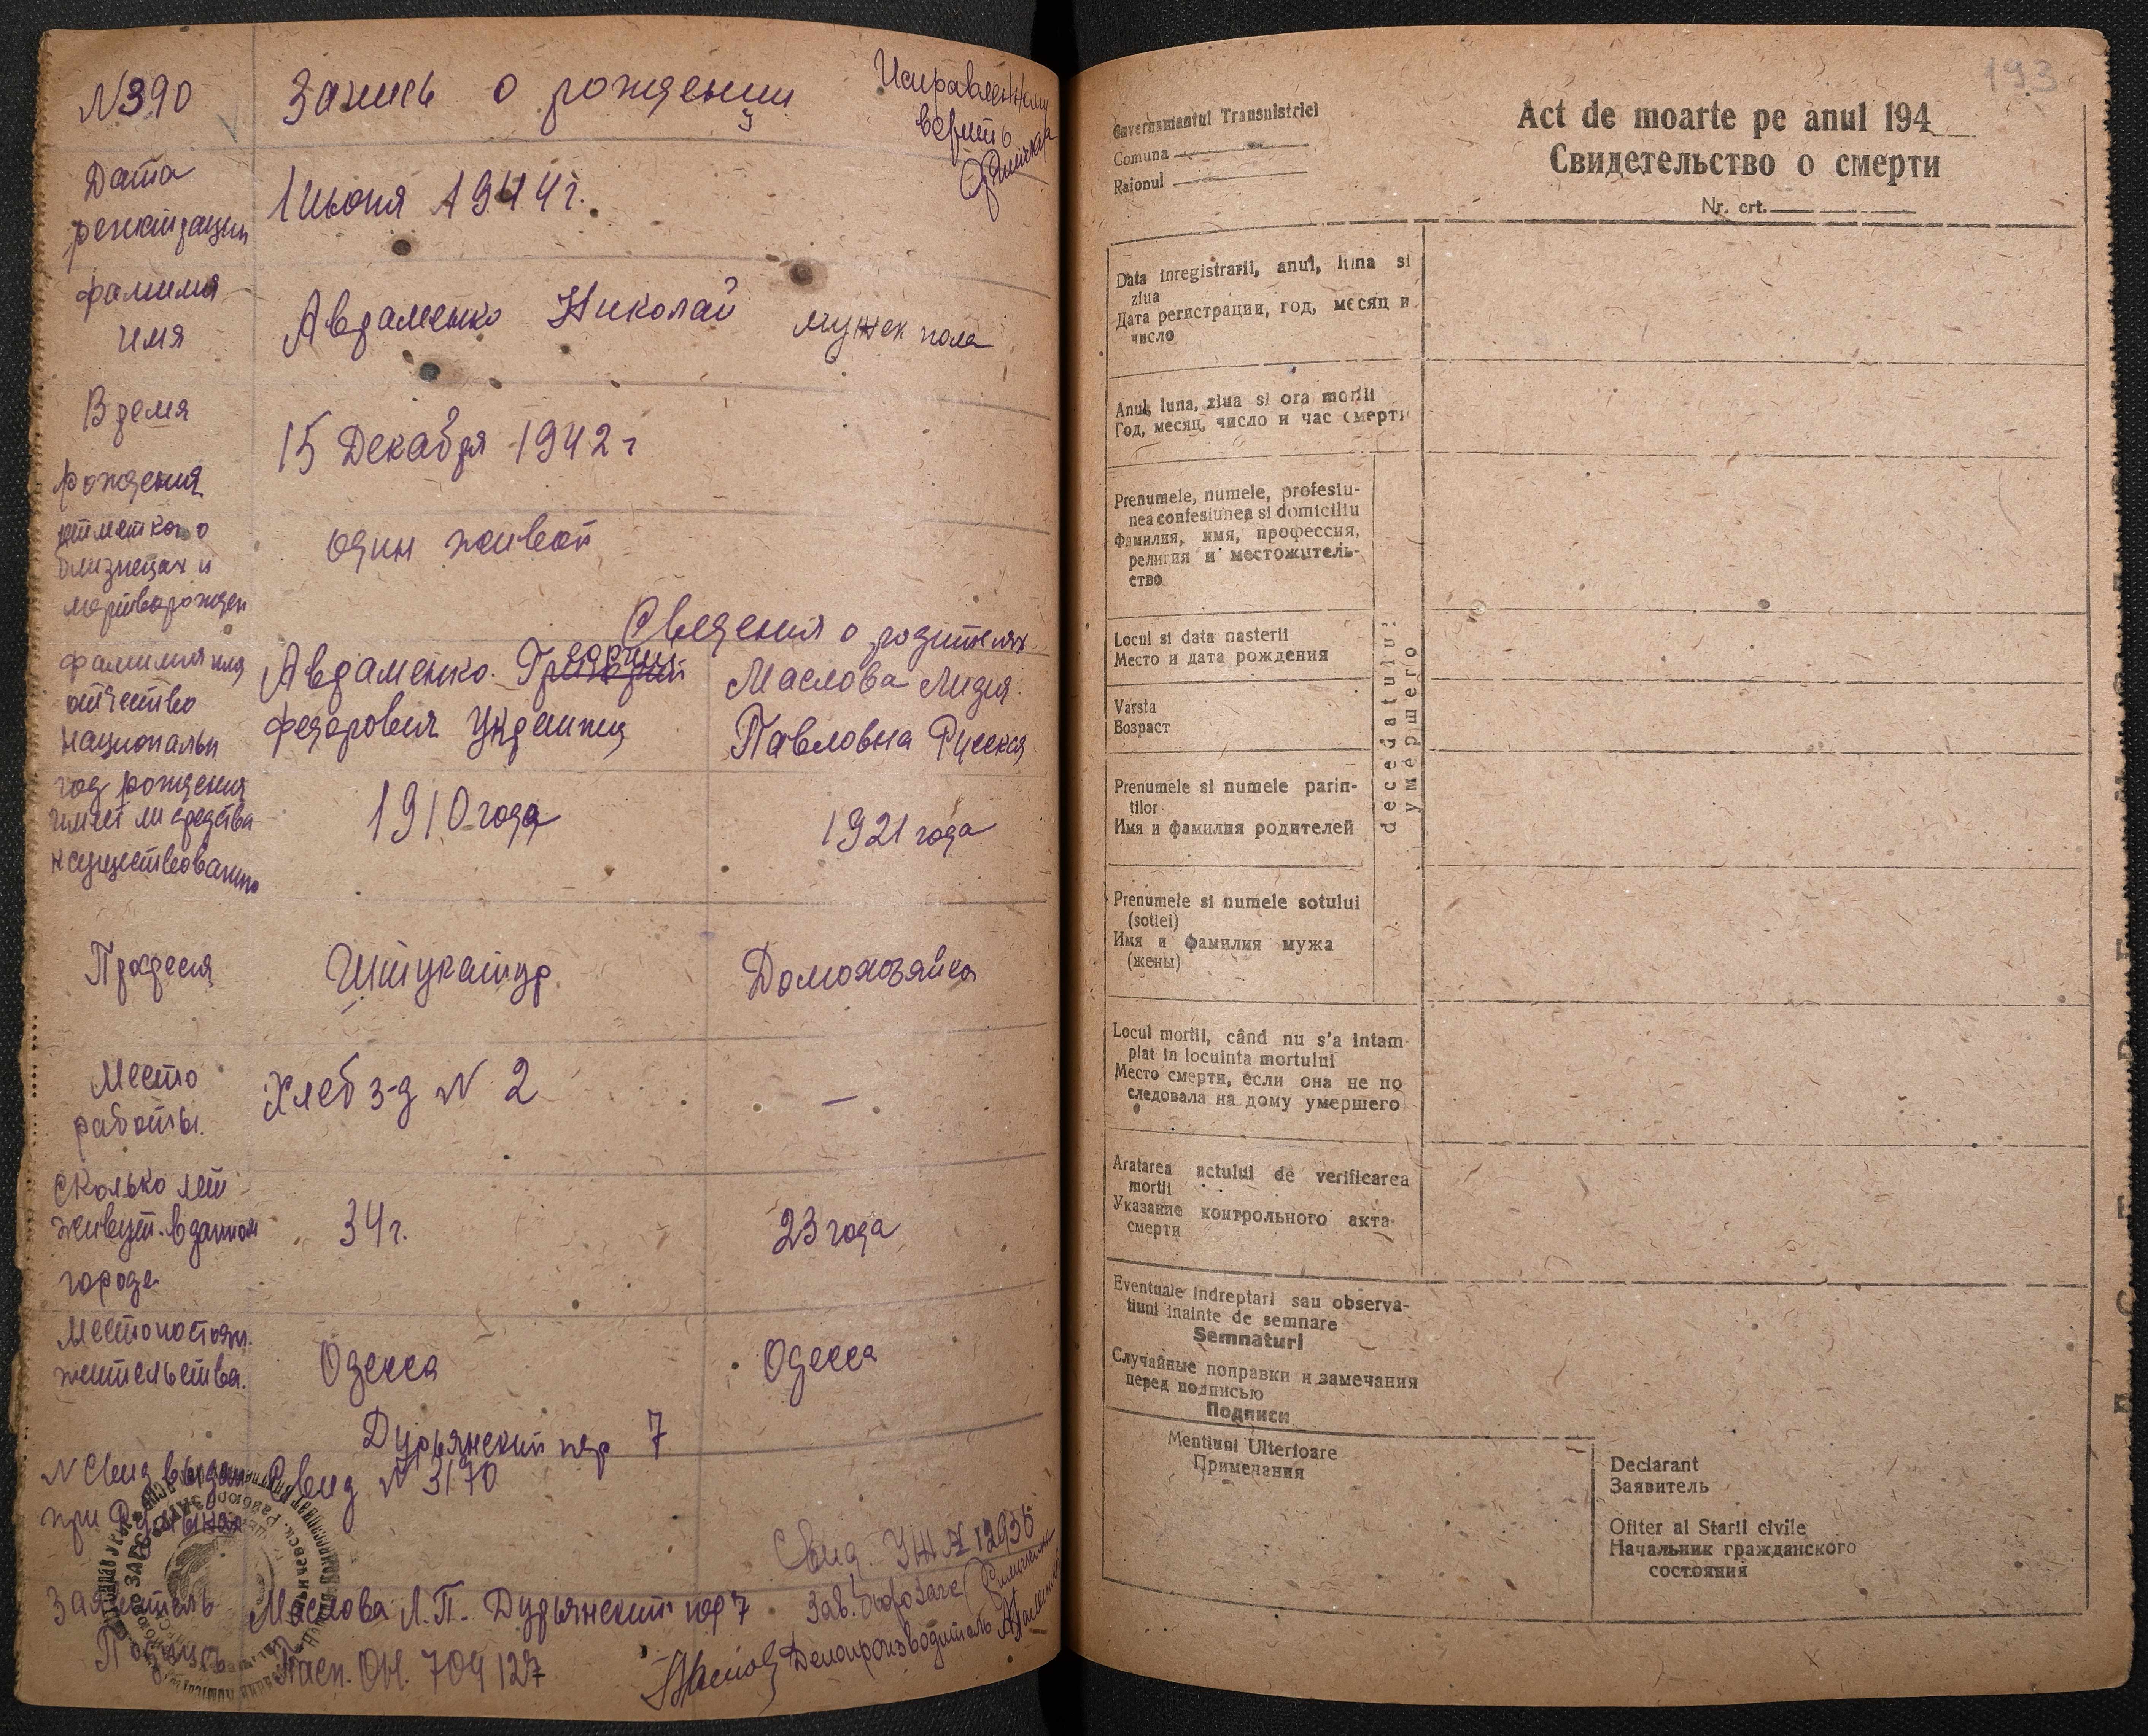 N390
Запись о рождении
Исправленному
верить
Дата
регистрации
1 Июня 1944 г.
фамилия
имя
Авраменко Николай
мужск пола
Время
рождения
15 Декабря 1942 г
отметка о
близнецах и
мертворожден
один живой
Сведения о родителях
фамилия имя
отчество
национальн
Авраменко. Григорий
Георгий
Федорович Украинец
Маслова Лидия
Павловна Русская
год рождения
имеет ли средства
к существованию
1910 года
1921 года
Професия
Штукатур
Домохозяйка
Место
работы.
Хлеб з-д N 2
—
Сколько лет
живут. в данном
городе
34 г.
23 года
Местопостоян.
жительства.
Одесса
Одесса
Дурьянский пер 7
N Свид выдан
при Румынах
Свид N 3170
Свид. УЖ № 12935
Заявитель
Маслова Л.П. Дурьянский пер 7
Зав. Бюро Загс
Подпись
Пасп. ОН. 704127
Делопроизводитель
193
Guvernamantul Transnistriei
Comuna
Raionul
Act de moarte pe anul 194
Свидетельство о смерти
Nr. crt.
Data inregistrarii, anul, luna si
ziua
Дата регистрации, год, месяц и
число
Anul, luna, ziua si ora mortii
Год, месяц, число и час смерти
Prenumele, numele, profesiu-
nea confesiunea si domiciliu
Фамилия, имя, профессия,
религия и местожитель-
ство
Locul si data nasterii
Место и дата рождения
Varsta
Возраст
Prenumele si numele parin-
tilor
Имя и фамилия родителей
decedatului
умершего
Prenumele si numele sotului
(sotiei)
Имя и фамилия мужа
(жены)
Locul mortii, când nu s'a intam-
plat in locuinta mortului
Место смерти, если она не по
следовала на дому умершего
Aratarea actului de verificarea
mortii
Указание контрольного акта
смерти
Eventuale indreptari sau observa-
tiuni inainte de semnare
Semnaturi
Случайные поправки и замечания
перед подписью
Подписи
Mentiuni Ulterioare
Примечания
Declarant
Заявитель
Ofiter al Starii civile
Начальник гражданского
состояния